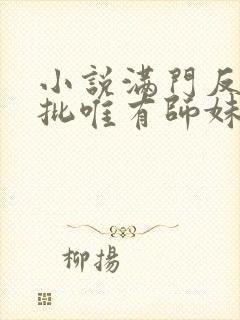 小說滿門反
批唯有師妹
柳揚